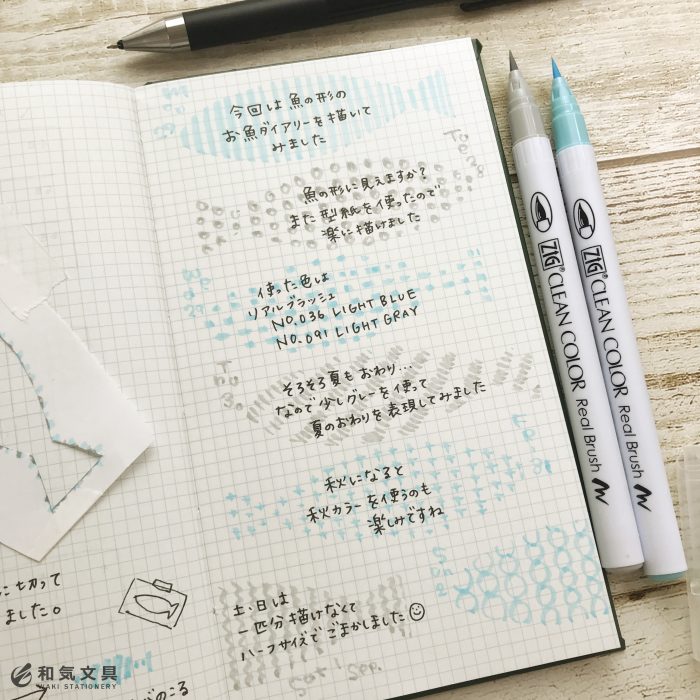 今回は魚の形の
お魚ダイアリーを描いて
みました
魚の形に見えますか?
また型紙を使ったので
楽に描けました
使った色は
リアルブラッシュ
NO.036 LIGHT BLUE
NO.091 LIGHT GRAY
そろそろ夏もおわり...
なので少しグレーを使って
夏のおわりを表現してみました
秋になると
秋カラーを使うのも
楽しみですね
土、日は
一匹分描けなくて
ハーフサイズでごまかしました
Sat Sep.
に切って
ました。
ZIG® CLEAN COLOR Real Brush
ZIG® CLEAN COLOR Real Brush
和気文具
WAKI STATIONERY